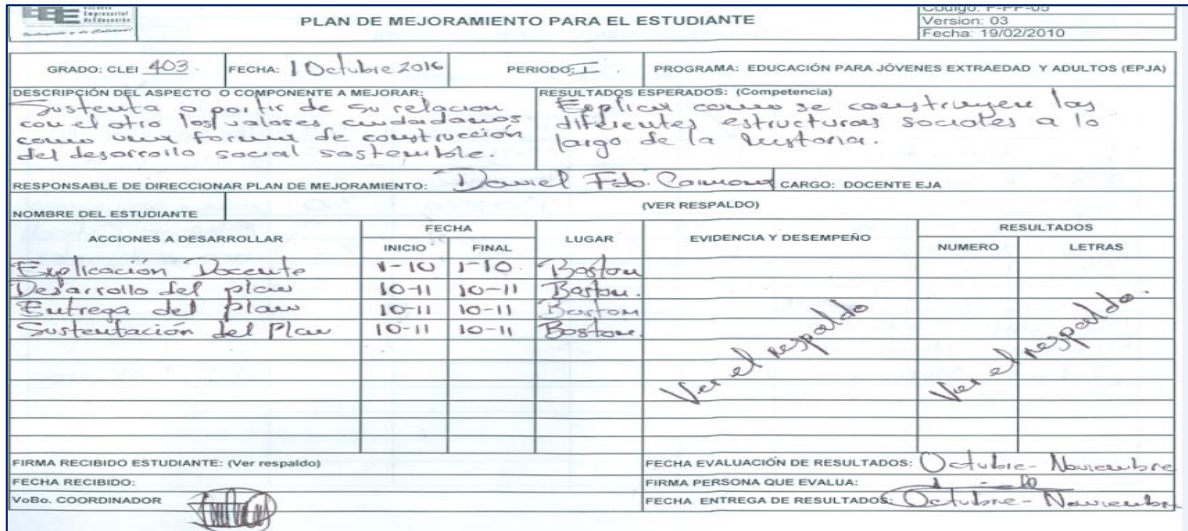 Empresarial
de Educación
PLAN DE MEJORAMIENTO PARA EL ESTUDIANTE
Código: F-PP-05
Version: 03
Fecha: 19/02/2010
GRADO: CLEI 403. FECHA: 1 Octubre 2016 PERIODO: I. PROGRAMA: EDUCACIÓN PARA JÓVENES EXTRAEDAD Y ADULTOS (EPJA)
DESCRIPCIÓN DEL ASPECTO O COMPONENTE A MEJORAR:
Sustenta a partir de su relacion
con el otro los valores ciudadanos
como una forma de construcción
del desarrollo social sostenible.
RESULTADOS ESPERADOS: (Competencia)
Explicar como se construyen las
diferentes estructuras sociales a lo
largo de la historia.
RESPONSABLE DE DIRECCIONAR PLAN DE MEJORAMIENTO: Daniel Fdo. Carmona CARGO: DOCENTE EJA
NOMBRE DEL ESTUDIANTE (VER RESPALDO)
ACCIONES A DESARROLLAR FECHA LUGAR EVIDENCIA Y DESEMPEÑO RESULTADOS
INICIO FINAL NUMERO LETRAS
Explicación Docente 1-10 1-10. Boston
Desarrollo del plan 10-11 10-11 Boston.
Entrega del plan 10-11 10-11 Boston
Sustentación del Plan 10-11 10-11 Boston.
Ver el respaldo
Ver el respaldo.
FIRMA RECIBIDO ESTUDIANTE: (Ver respaldo) FECHA EVALUACIÓN DE RESULTADOS: Octubre - Noviembre
FECHA RECIBIDO: FIRMA PERSONA QUE EVALUA:
VoBo. COORDINADOR FECHA ENTREGA DE RESULTADOS: Octubre - Noviembre